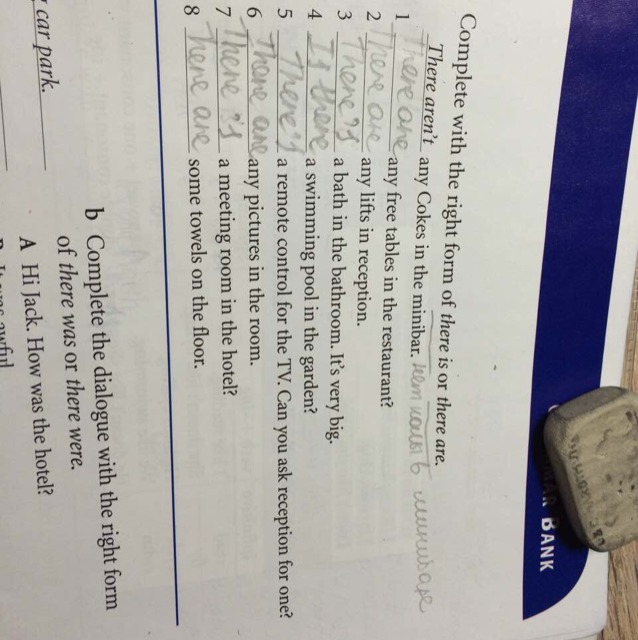 BANK
Complete with the right form of there is or there are.
There aren't any Cokes in the minibar. нет колы в минибаре
1 There are any free tables in the restaurant?
2 There are any lifts in reception.
3 There is a bath in the bathroom. It's very big.
4 Is there a swimming pool in the garden?
5 There is a remote control for the TV. Can you ask reception for one?
6 There are any pictures in the room.
7 There is a meeting room in the hotel?
8 There are some towels on the floor.
car park.
b Complete the dialogue with the right form
of there was or there were.
A Hi Jack. How was the hotel?
awful